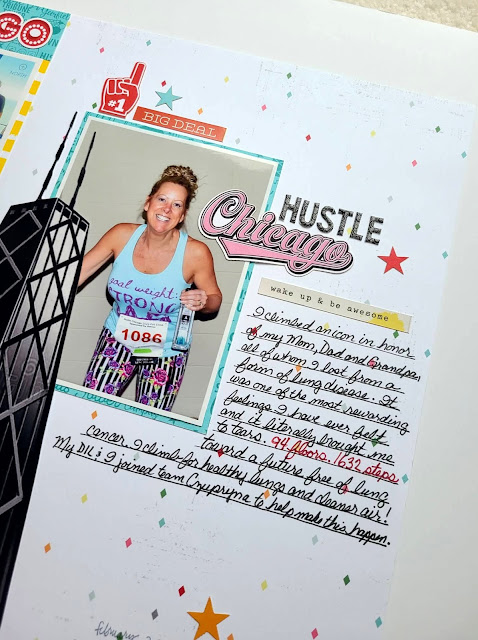 GO
#1
BIG DEAL
HUSTLE
Chicago
goal weight:
STRONG
1086
wake up & be awesome
I climbed an icon in honor
of my Mom, Dad and Grandpa,
all of whom I lost from a
form of lung disease. It
was one of the most rewarding
feelings I have ever felt
and it literally brought me
to tears. 94 floors. 1632 steps
toward a future free of lung
cancer. I climb for healthy lungs and cleaner air!
My DIL & I joined team to help make this happen.
february